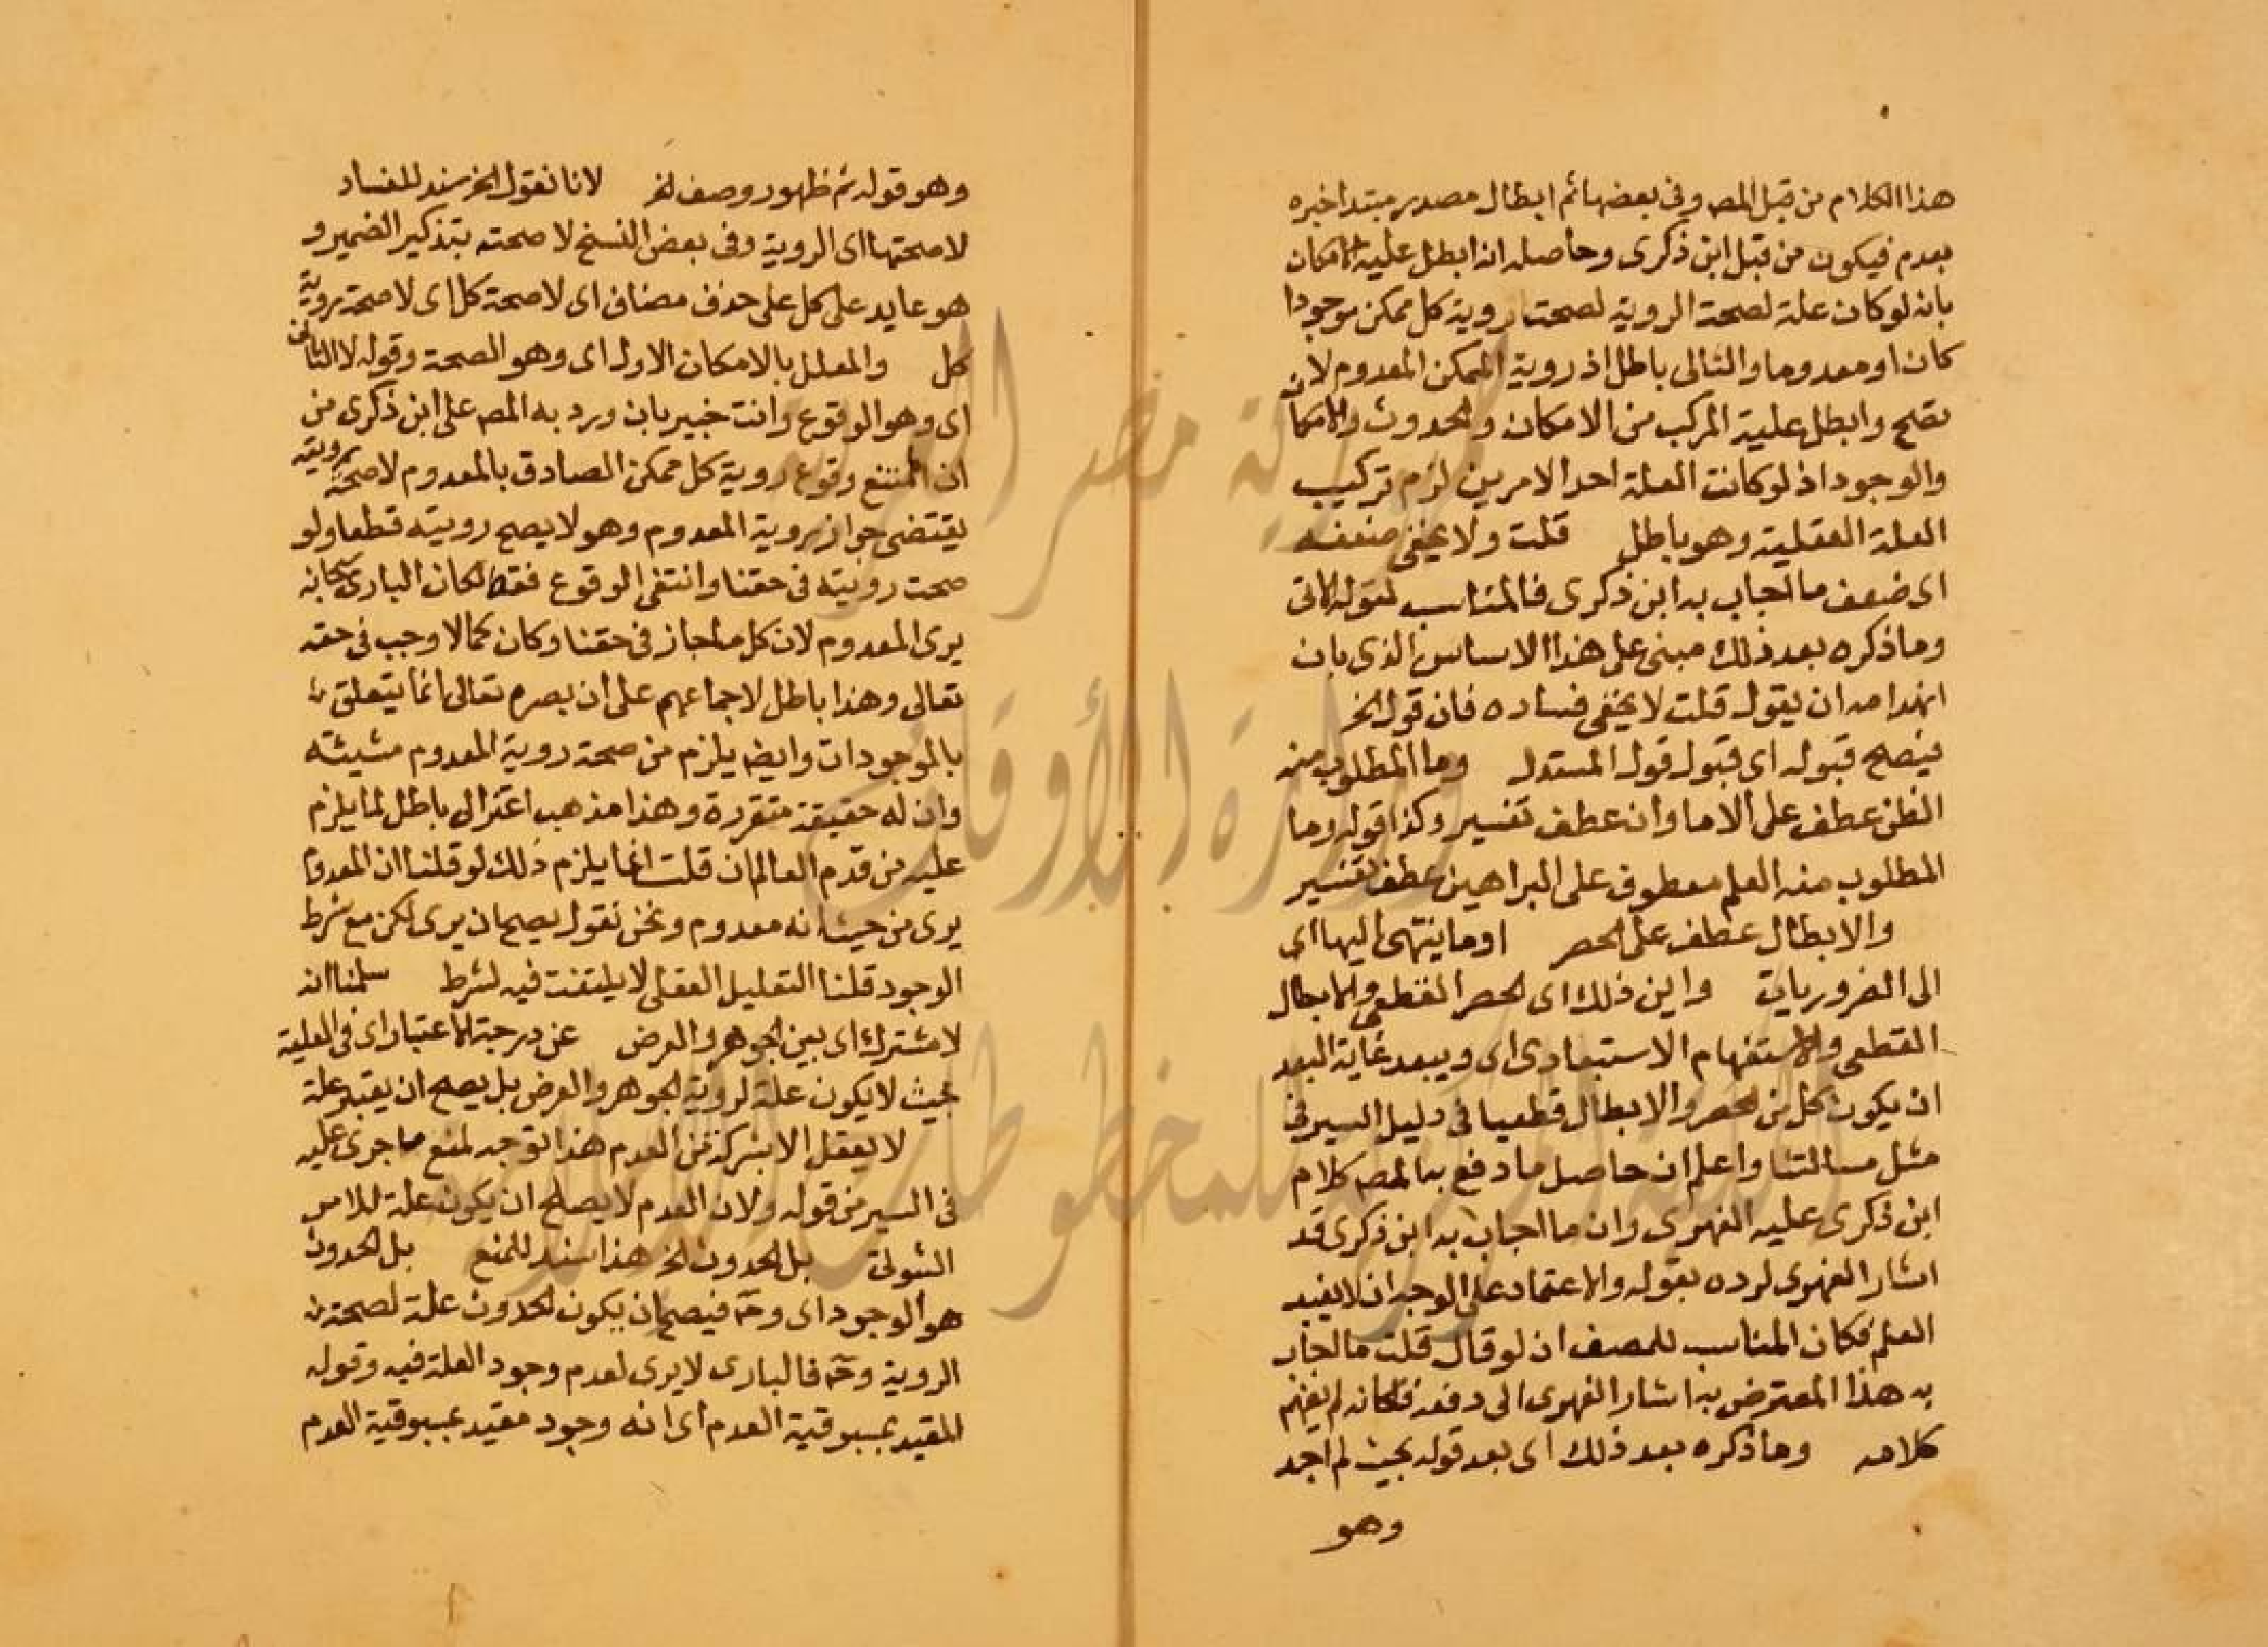 هذا الكلام من قبل المص وفى بعضها ثم ابطال مصدر مبتدا خبره
بعدم فيكون من قبل ابن ذكرى وحاصله انه ابطل علية الامكان
بانه لو كان علة لصحة الروية لصحت روية كل ممكن موجودا
كان او معدوما والتالى باطل اذ روية الممكن المعدوم لا
تصح وابطل علية المركب من الامكان والحدوث والامكان
والوجود اذ لو كانت العلة احد الامرين لزم تركيب
العلة العقلية وهو باطل قلت ولا يخفى ضعفه
اى ضعف ما اجاب به ابن ذكرى فالمناسب لقوله الاتى
وما ذكره بعد ذلك مبنى على هذا الاساس الذى بان
انهدامه ان يقول قلت لا يخفى فساده فان قوله الخ
فيصح قبوله اى قبول قول المستدل وما المطلوب منه
الظن عطف على الاما وان عطف تفسير وكذا قوله وما
المطلوب منه العلم معطوف على البراهين عطف تفسير
والابطال عطف على الحصر او ما ينتهى اليها اى
الى الضروريات واين ذلك اى الحصر القطعى والابطال
القطعى والاستفهام الاستبعادى اى ويبعد غاية البعد
ان يكون كل من الحصر والابطال قطعيا فى دليل السبر فى
مثل مسالتنا واعلم ان حاصل ما دفع به المص كلام
ابن ذكرى عليه الفهرى وان ما اجاب به ابن ذكرى قد
اشار الفهرى لرده بقوله والاعتماد على الوجدان لا يفيد
العلم فكان المناسب للمصنف ان لو قال قلت ما اجاب
به هذا المعترض به اشار الفهرى الى دفعه فكانه لم يفهم
كلامه وما ذكره بعد ذلك اى بعد قوله بحيث لم اجد
وهو
وهو قوله ثم ظهور وصف الخ لانا نقول الخ سند للفساد
لا صحتها اى الروية وفى بعض النسخ لا صحته بتذكير الضمير و
هو عايد على كل على حذف مضاف اى لا صحة كل اى لا صحة روية
كل والمعلل بالامكان الاول اى وهو الصحة وقوله لا الثانى
اى وهو الوقوع وانت خبير بان ورد به المص على ابن ذكرى من
ان الممتنع وقوع روية كل ممكن الصادق بالمعدوم لا صحة رويته
يقتضى جواز روية المعدوم وهو لا يصح رويته قطعا ولو
صحت رويته فى حقنا وانتفى الوقوع فقط لكان البارى سبحانه
يرى المعدوم لان كل ما جاز فى حقنا وكان كمالا وجب فى حقه
تعالى وهذا باطل لاجماعهم على ان بصره تعالى انما يتعلق
بالموجودات وايضا يلزم من صحة روية المعدوم شيئيته
وان له حقيقة متقررة وهذا مذهب اعتزالى باطل لما يلزم
عليه من قدم العالم ان قلت انما يلزم ذلك لو قلنا ان المعدوم
يرى من حيث انه معدوم ونحن نقول يصح ان يرى لكن مع شرط
الوجود قلنا التعليل العقلى لا يلتفت فيه لشرط سلمنا انه
لا مشترك اى بين الجوهر والعرض عن درجة الاعتبار اى فى العلية
بحيث لا يكون علة لروية الجوهر والعرض بل يصح ان يعتبر علة
لا يعقل الا بشركة من العدم هذا توجيه لمنع ما جرى عليه
فى السبر من قوله ولان العدم لا يصلح ان يكون علة للامر
الثبوتى بل الحدوث الخ هذا سند للمنع بل الحدوث
هو الوجود اى وح فيصح ان يكون الحدوث علة لصحة
الروية وح فالبارى لا يرى لعدم وجود العلة فيه وقوله
المقيد بمسبوقية العدم اى انه وجود مقيد بمسبوقية العدم
جمهورية مصر العربية
وزارة الأوقاف